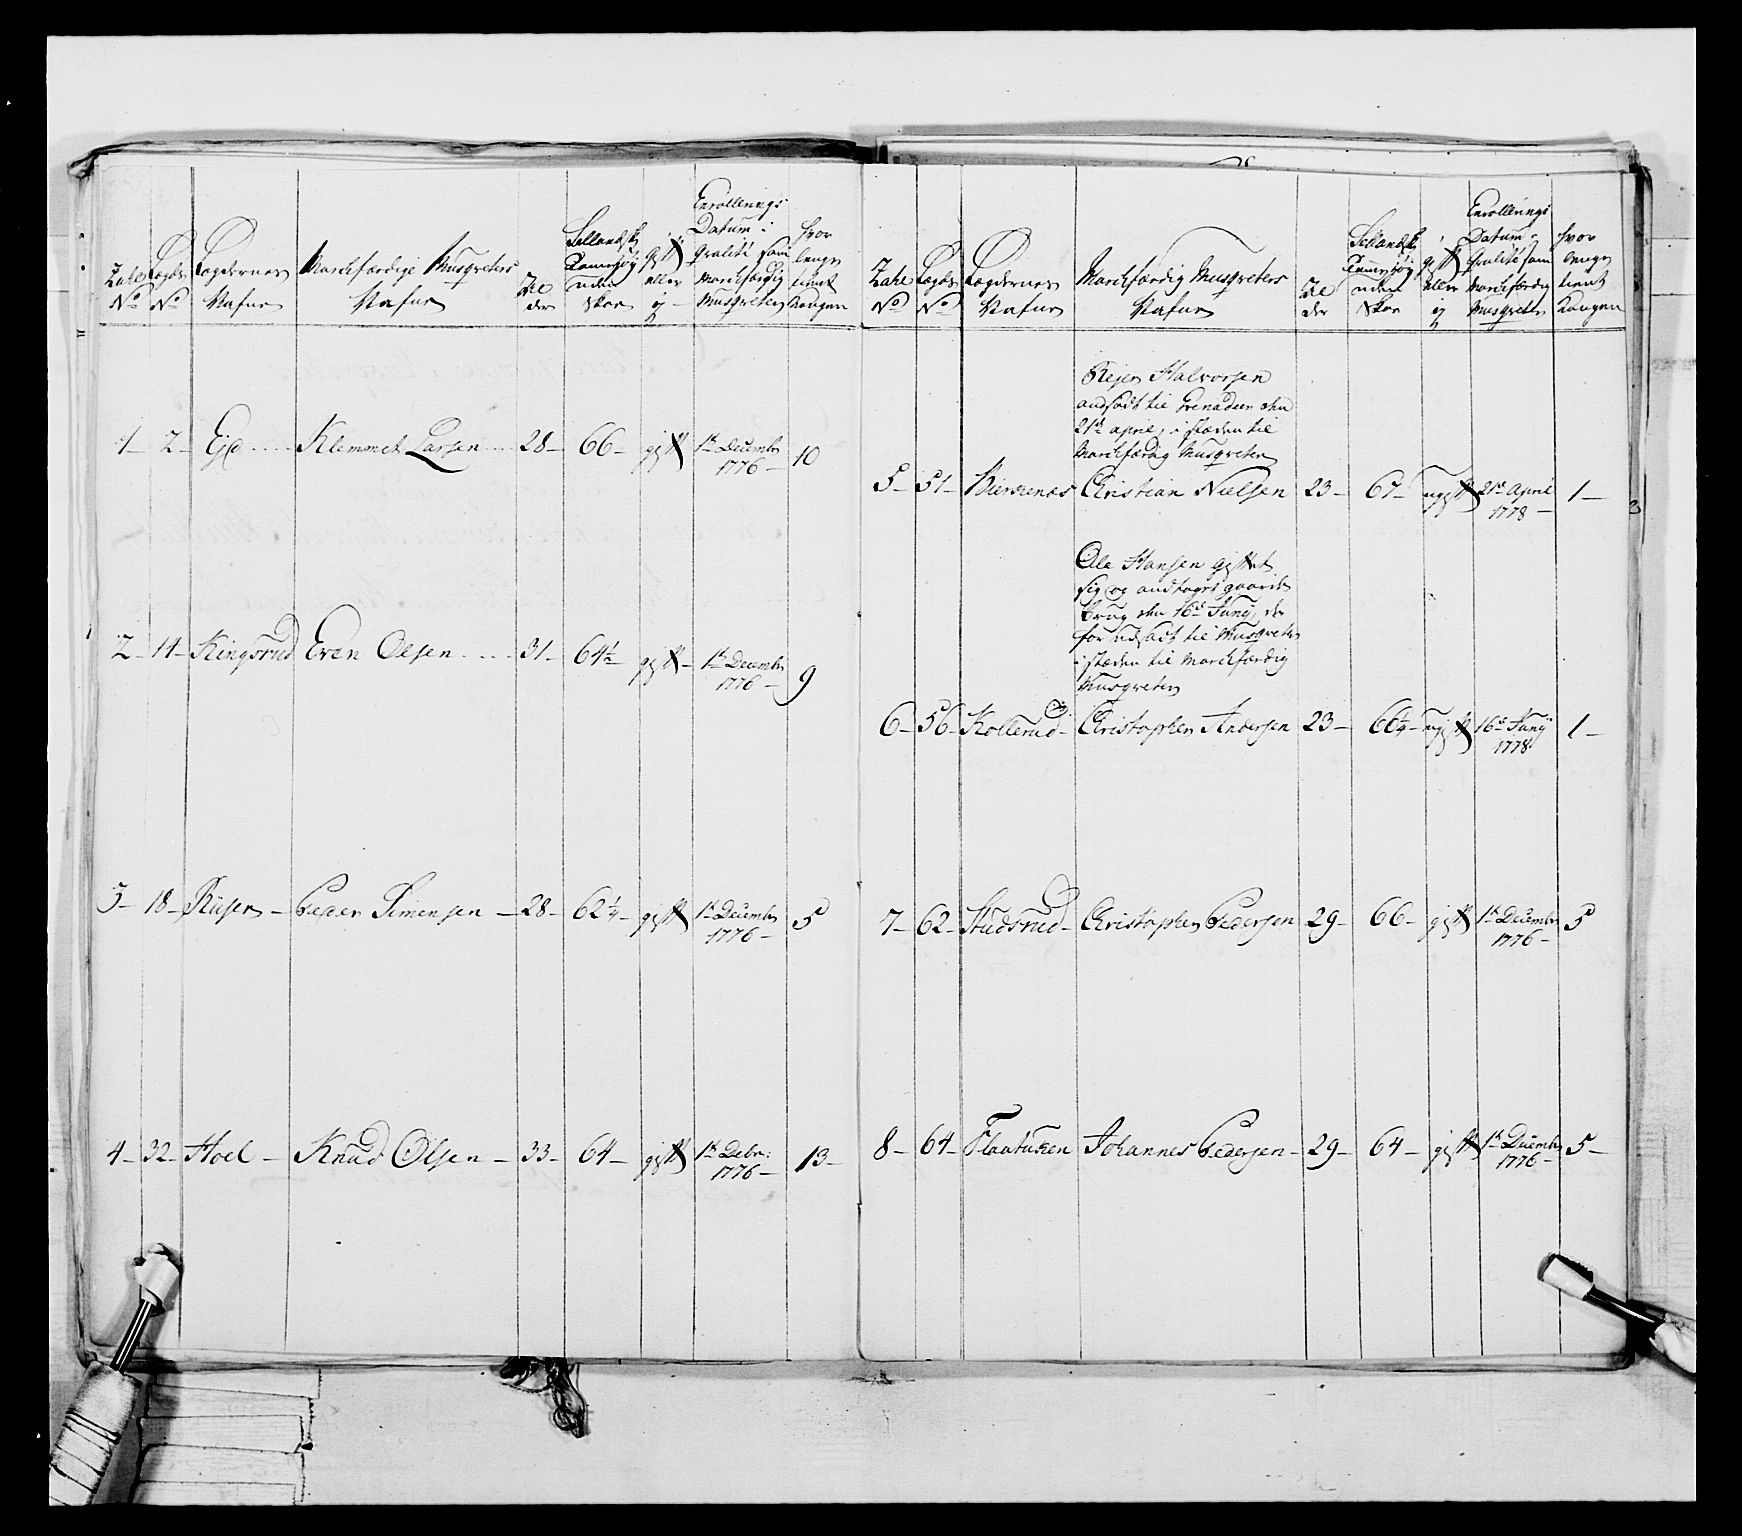 Zahl No
Lægds No
Lægdernes Nafne
Marchfærdige Musqveters Nafne
Al der
Sellandsk Tommehøy uden Skoe
gift eller ej
Enrollerings Datum i qvalité som Marchfærdig Musqveter
hvor længe tient Kongen
1 - 2 - Ejd .... Klemmet Larsen .... 28 - 66 - gift 1te Decembr 1776 - 10
2 - 14 - Ringsrud Even Olsen .... 31 - 64½ gift - 1te Decembr 1776 - 9
3 - 18 - Riiser - Peder Simensen - 28 - 62¼ - gift 1te Decembr 1776 - 5
4 - 32 - Hoel - Knud Olsen - 33 - 64 - gift 1te Debr: 1776 - 13 -
Zahl No
Lægds No
Lægdernes Nafne
Marchfærdig Musqveters Nafne
Al der
Sellandsk Tommehøy uden Skoe
gift eller ej
Enrollerings Datum i qvalité som Marchfærdig Musqveter
hvor længe tient Kongen
Rejer Halvorsen
andsadt til Grenadeer den
21de april, i stæden til
Marchfærdig Musqveter
5 - 51 - Christian Nielsen 23 - 67 - ugift 21de April 1778 - 1 -
Ole Hansen giftet
sig og andtaget gaards
brug den 16de Junij, der
for udsadt til Musqveter
i stæden til Marchfærdig
Musqveter
6 - 56 - Kollerud - Christopher Andersen 23 - 66¼ - ugift 16de Junij 1778 1 -
7 - 62 - Studsrud - Christopher Pedersen 29 - 66 - gift 1te Decembr 1776 - 5
8 - 64 - Johannes Pedersen - 29 - 64 - gift 1te Decembr 1776 - 5 -